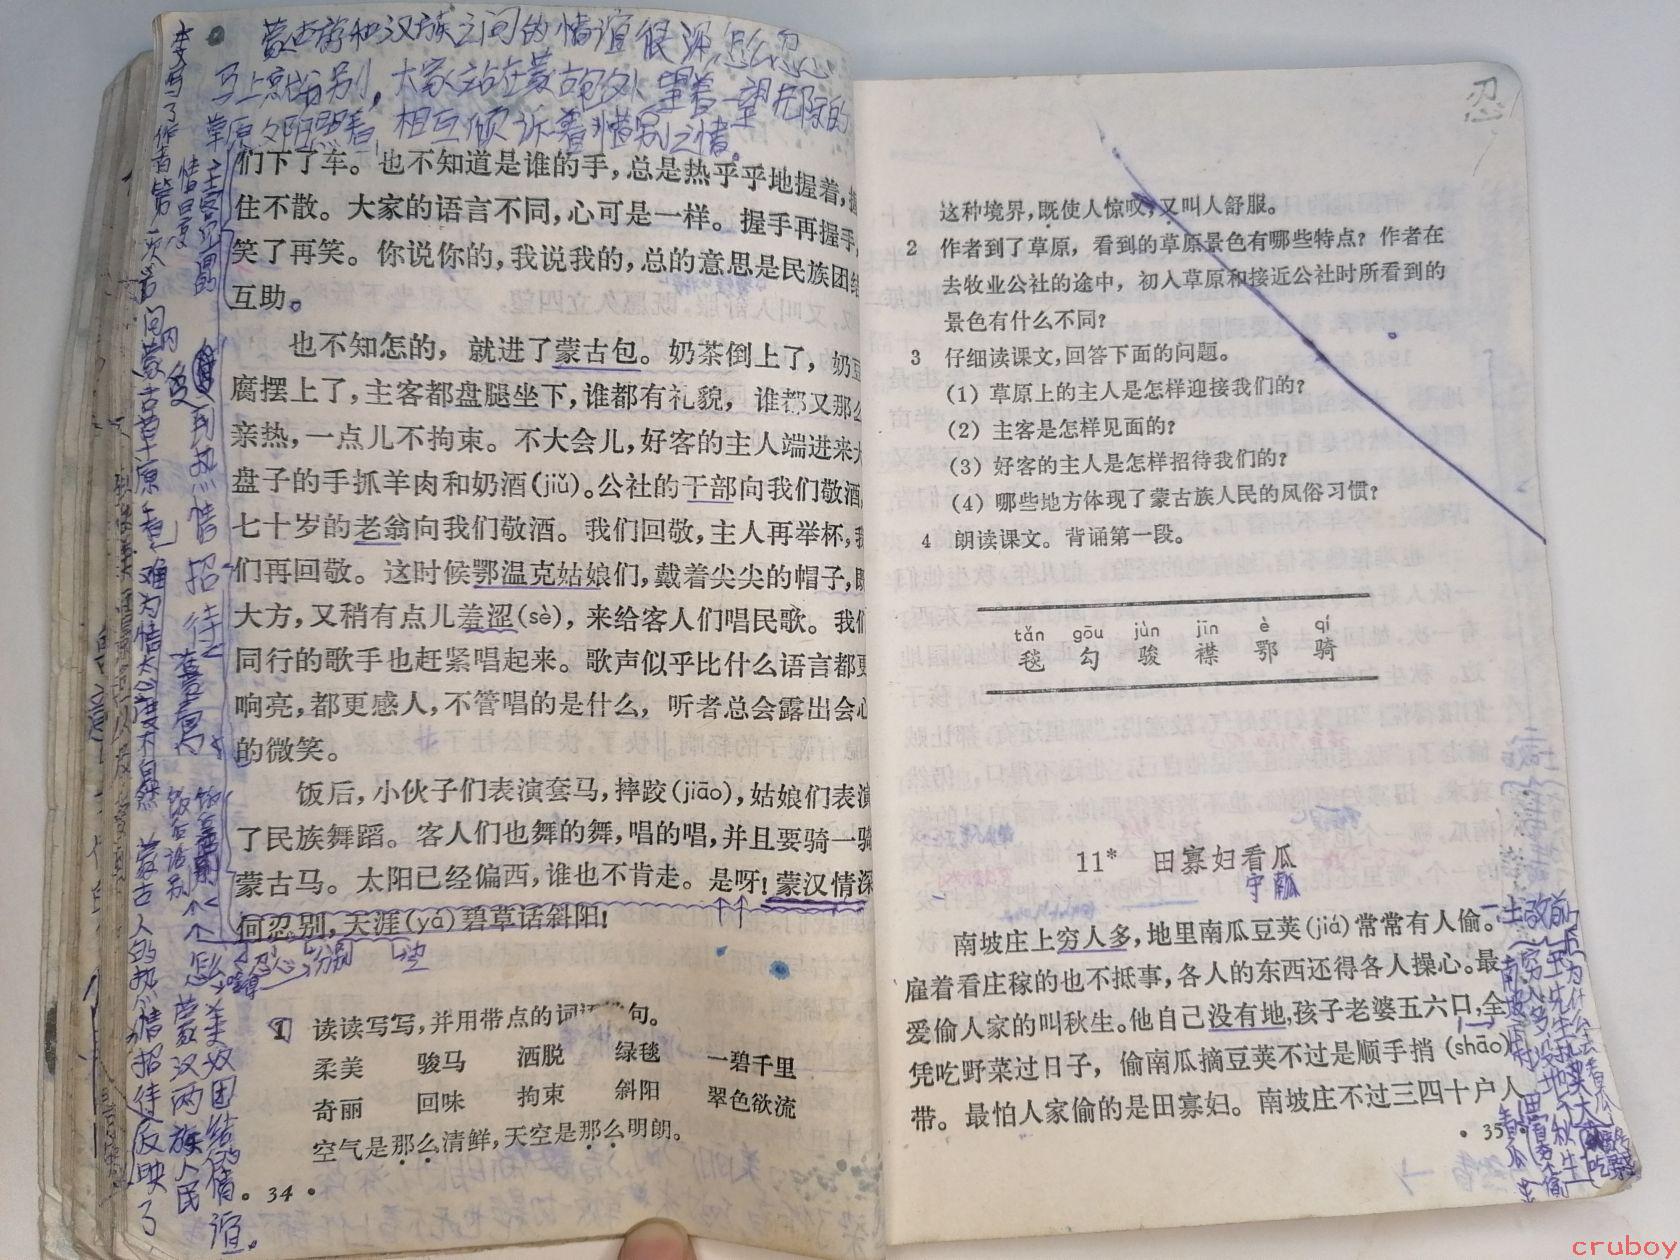 蒙古族和汉族之间的情谊很深,怎么忍心
马上就分别,大家站在蒙古包外望着一望无际的
草原夕阳照着,相互倾诉着惜别之情。
们下了车。也不知道是谁的手,总是热乎乎地握着,握
住不散。大家的语言不同,心可是一样。握手再握手,
笑了再笑。你说你的,我说我的,总的意思是民族团结
互助。
也不知怎的,就进了蒙古包。奶茶倒上了,奶豆
腐摆上了,主客都盘腿坐下,谁都有礼貌,谁都又那么
亲热,一点儿不拘束。不大会儿,好客的主人端进来大
盘子的手抓羊肉和奶酒(jiǔ)。公社的干部向我们敬酒,
七十岁的老翁向我们敬酒。我们回敬,主人再举杯,我
们再回敬。这时候鄂温克姑娘们,戴着尖尖的帽子,既
大方,又稍有点儿羞涩(sè),来给客人们唱民歌。我们
同行的歌手也赶紧唱起来。歌声似乎比什么语言都更
响亮,都更感人,不管唱的是什么,听者总会露出会心
的微笑。
饭后,小伙子们表演套马,摔跤(jiāo),姑娘们表演
了民族舞蹈。客人们也舞的舞,唱的唱,并且要骑一骑
蒙古马。太阳已经偏西,谁也不肯走。是呀!蒙汉情深
何忍别,天涯(yá)碧草话斜阳!
忍心 分别
1 读读写写,并用带点的词语 句。
柔美 骏马 洒脱 绿毯 一碧千里
奇丽 回味 拘束 斜阳 翠色欲流
空气是那么清鲜,天空是那么明朗。
· 34 ·
本文写了作者第一次访问内蒙古草原看到
主客之间的
热情招待
饭后话别
蒙古人的热情招待反映了
蒙汉两族人民
团结情谊。
忍
这种境界,既使人惊叹,又叫人舒服。
2 作者到了草原,看到的草原景色有哪些特点?作者在
去牧业公社的途中,初入草原和接近公社时所看到的
景色有什么不同?
3 仔细读课文,回答下面的问题。
(1) 草原上的主人是怎样迎接我们的?
(2) 主客是怎样见面的?
(3) 好客的主人是怎样招待我们的?
(4) 哪些地方体现了蒙古族人民的风俗习惯?
4 朗读课文。背诵第一段。
tǎn gōu jùn jīn è qí
毯 勾 骏 襟 鄂 骑
11* 田寡妇看瓜
南坡庄上穷人多,地里南瓜豆荚(jiá)常常有人偷。
雇着看庄稼的也不抵事,各人的东西还得各人操心。最
爱偷人家的叫秋生。他自己没有地,孩子老婆五六口,全
凭吃野菜过日子,偷南瓜摘豆荚不过是顺手捎(shāo)
带。最怕人家偷的是田寡妇。南坡庄不过三四十户人
· 35 ·
cruboy